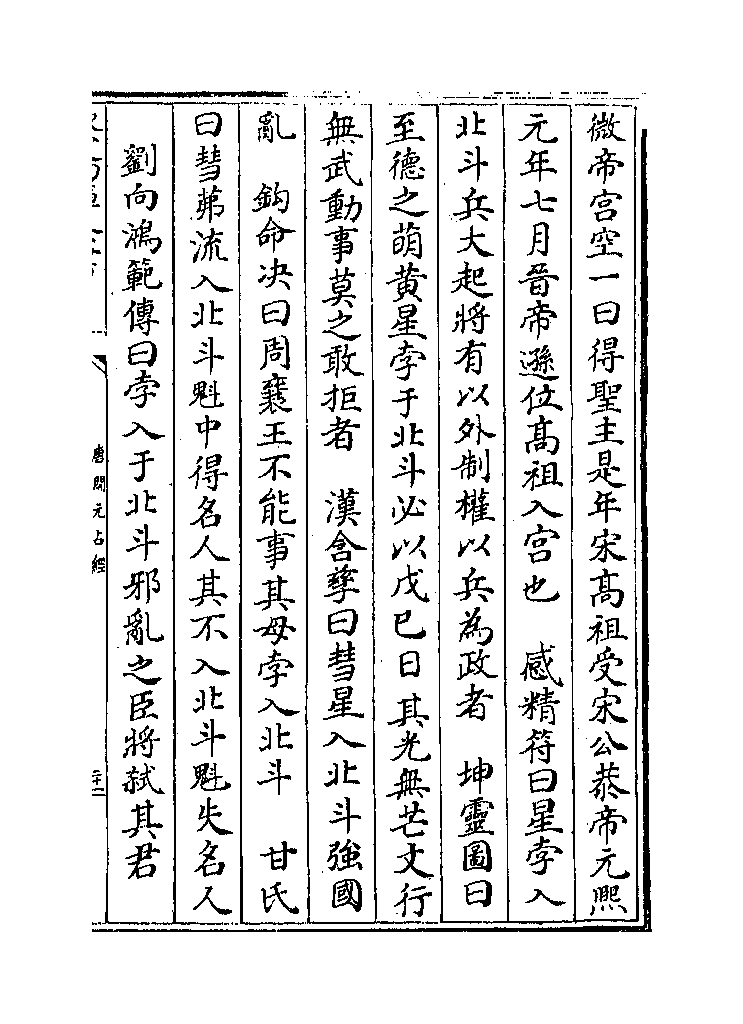 微帝宫空一曰得聖主是年宋髙祖受宋公恭帝元熙
元年七月晉帝遜位髙祖入宫也　感精符曰星孛入
北斗兵大起將有以外制權以兵為政者　坤靈圖曰
至德之萌黄星孛于北斗必以戊巳日其光無芒丈行
無武動事莫之敢拒者　漢含孳曰彗星入北斗強國
亂　鈎命决曰周襄王不能事其母孛入北斗　甘氏
曰彗茀流入北斗魁中得名人其不入北斗魁失名人
劉向鴻範傳曰孛入于北斗邪亂之臣將弑其君
唐開元占經